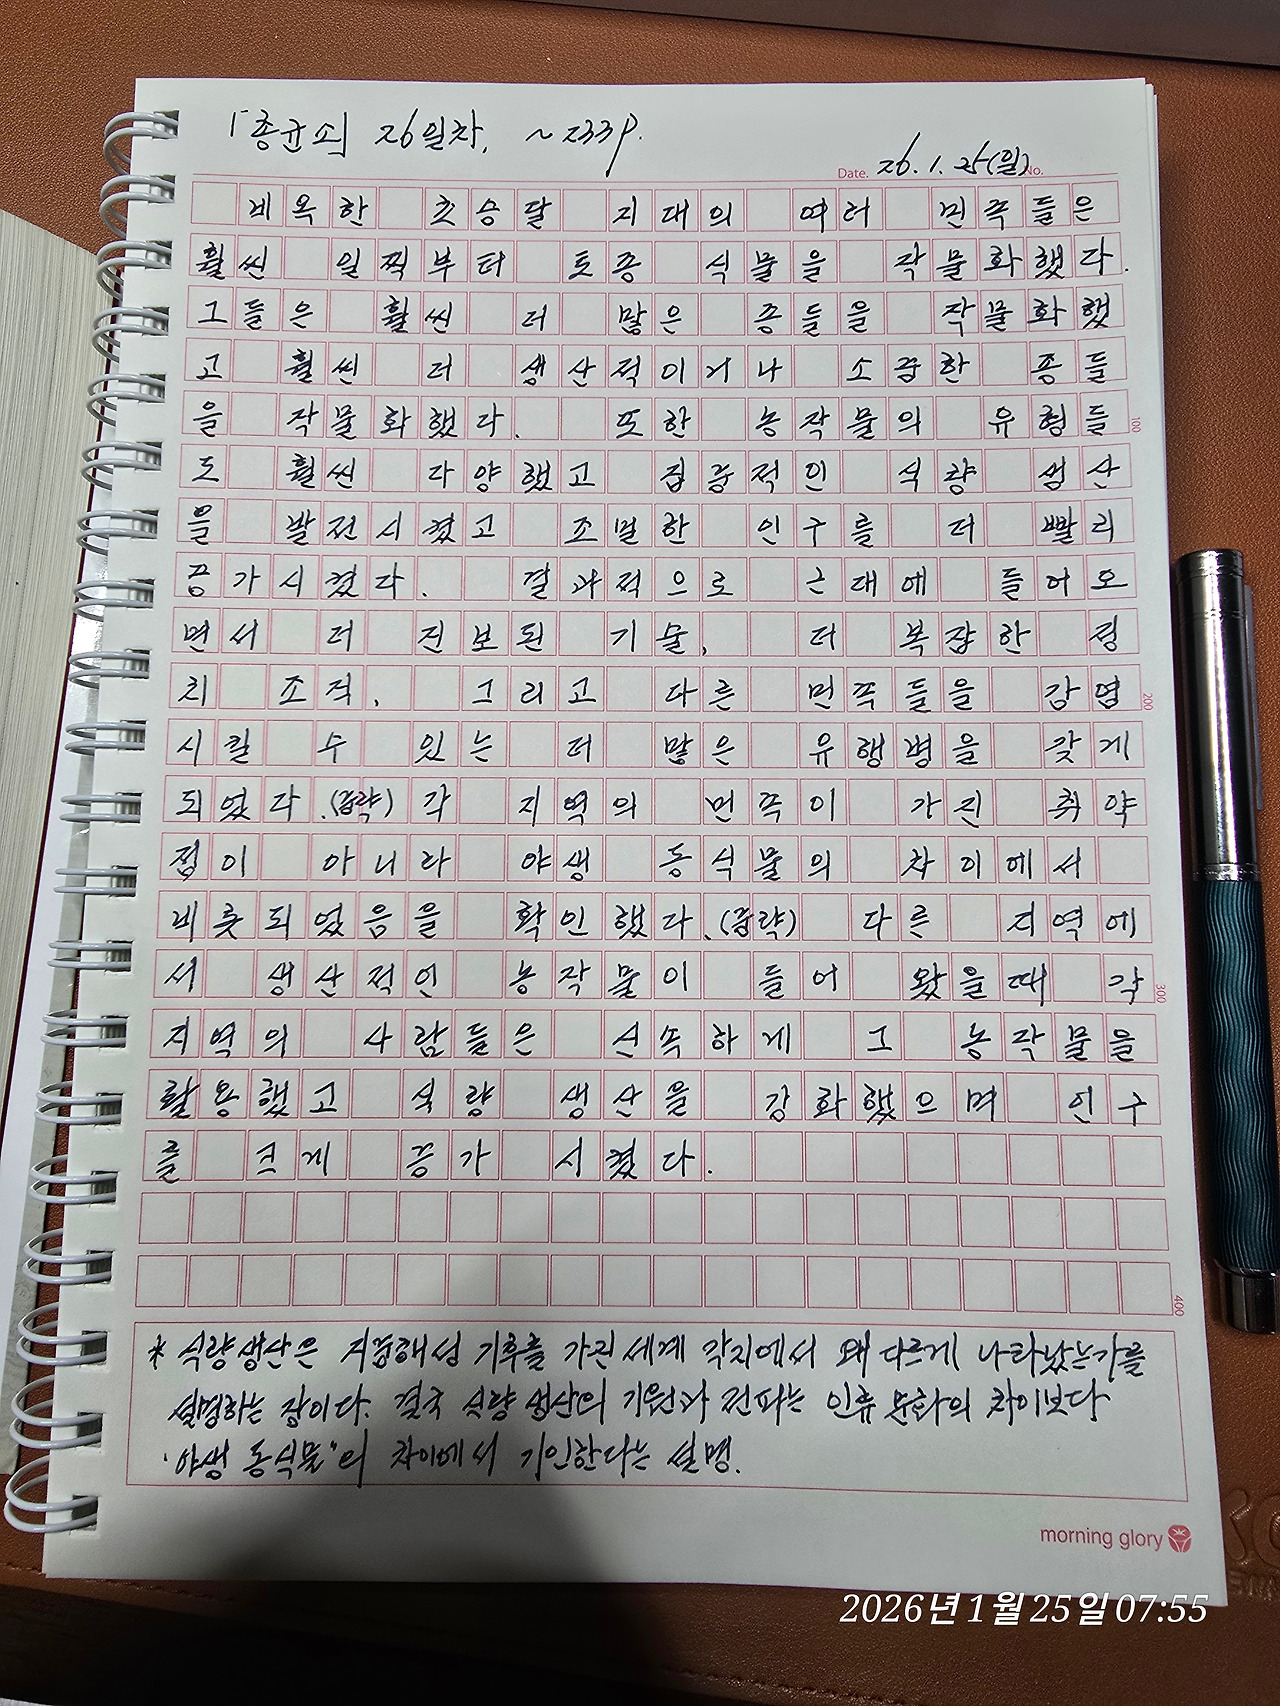 「총균쇠」 26일차, ~233p.
Date. 26. 1. 25(일) No.
비옥한 초승달 지대의 여러 민족들은
훨씬 일찍부터 토종 식물을 작물화했다.
그들은 훨씬 더 많은 종들을 작물화했
고 훨씬 더 생산적이거나 소중한 종들
을 작물화했다. 또한 농작물의 유형들
100
도 훨씬 다양했고 집중적인 식량 생산
을 발전시켰고 조밀한 인구를 더 빨리
증가시켰다. 결과적으로 근대에 들어오
면서 더 진보된 기술, 더 복잡한 정
치 조직, 그리고 다른 민족들을 감염
200
시킬 수 있는 더 많은 유행병을 갖게
되었다.(중략) 각 지역의 민족이 가진 취약
점이 아니라 야생 동식물의 차이에서
비롯되었음을 확인했다.(중략) 다른 지역에
서 생산적인 농작물이 들어 왔을때 각
300
지역의 사람들은 신속하게 그 농작물을
활용했고 식량 생산을 강화했으며 인구
를 크게 증가 시켰다.
400
* 식량생산은 지중해성 기후를 가진 세계 각지에서 왜 다르게 나타났는가를
설명하는 장이다. 결국 식량 생산의 기원과 전파는 인류 문화의 차이보다
'야생 동식물'의 차이에서 기인한다는 설명.
morning glory
2026년 1월 25일 07:55